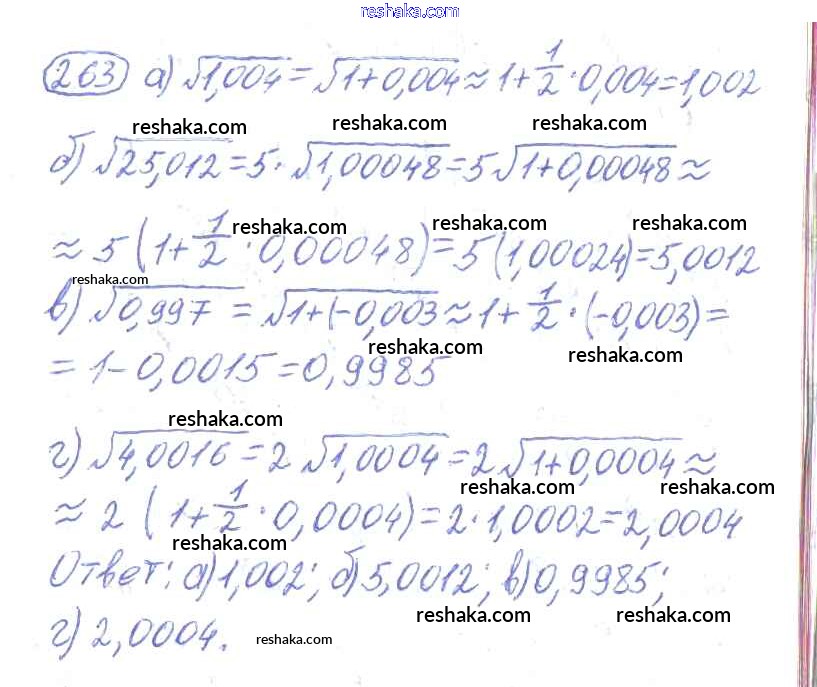 reshaka.com
263 а) √1,004 = √1+0,004 ≈ 1+1/2·0,004=1,002
reshaka.com reshaka.com reshaka.com
б) √25,012 = 5·√1,00048 = 5√1+0,00048 ≈
reshaka.com reshaka.com reshaka.com
≈ 5(1+1/2·0,00048)=5(1,00024)=5,0012
reshaka.com
в) √0,997 = √1+(-0,003 ≈ 1+1/2·(-0,003)=
reshaka.com reshaka.com
= 1-0,0015=0,9985
reshaka.com
г) √4,0016 = 2√1,0004 = 2√1+0,0004 ≈
reshaka.com reshaka.com
≈ 2 (1+1/2·0,0004)=2·1,0002=2,0004
reshaka.com
Ответ: а)1,002; б)5,0012; в)0,9985;
reshaka.com reshaka.com
г) 2,0004.
reshaka.com